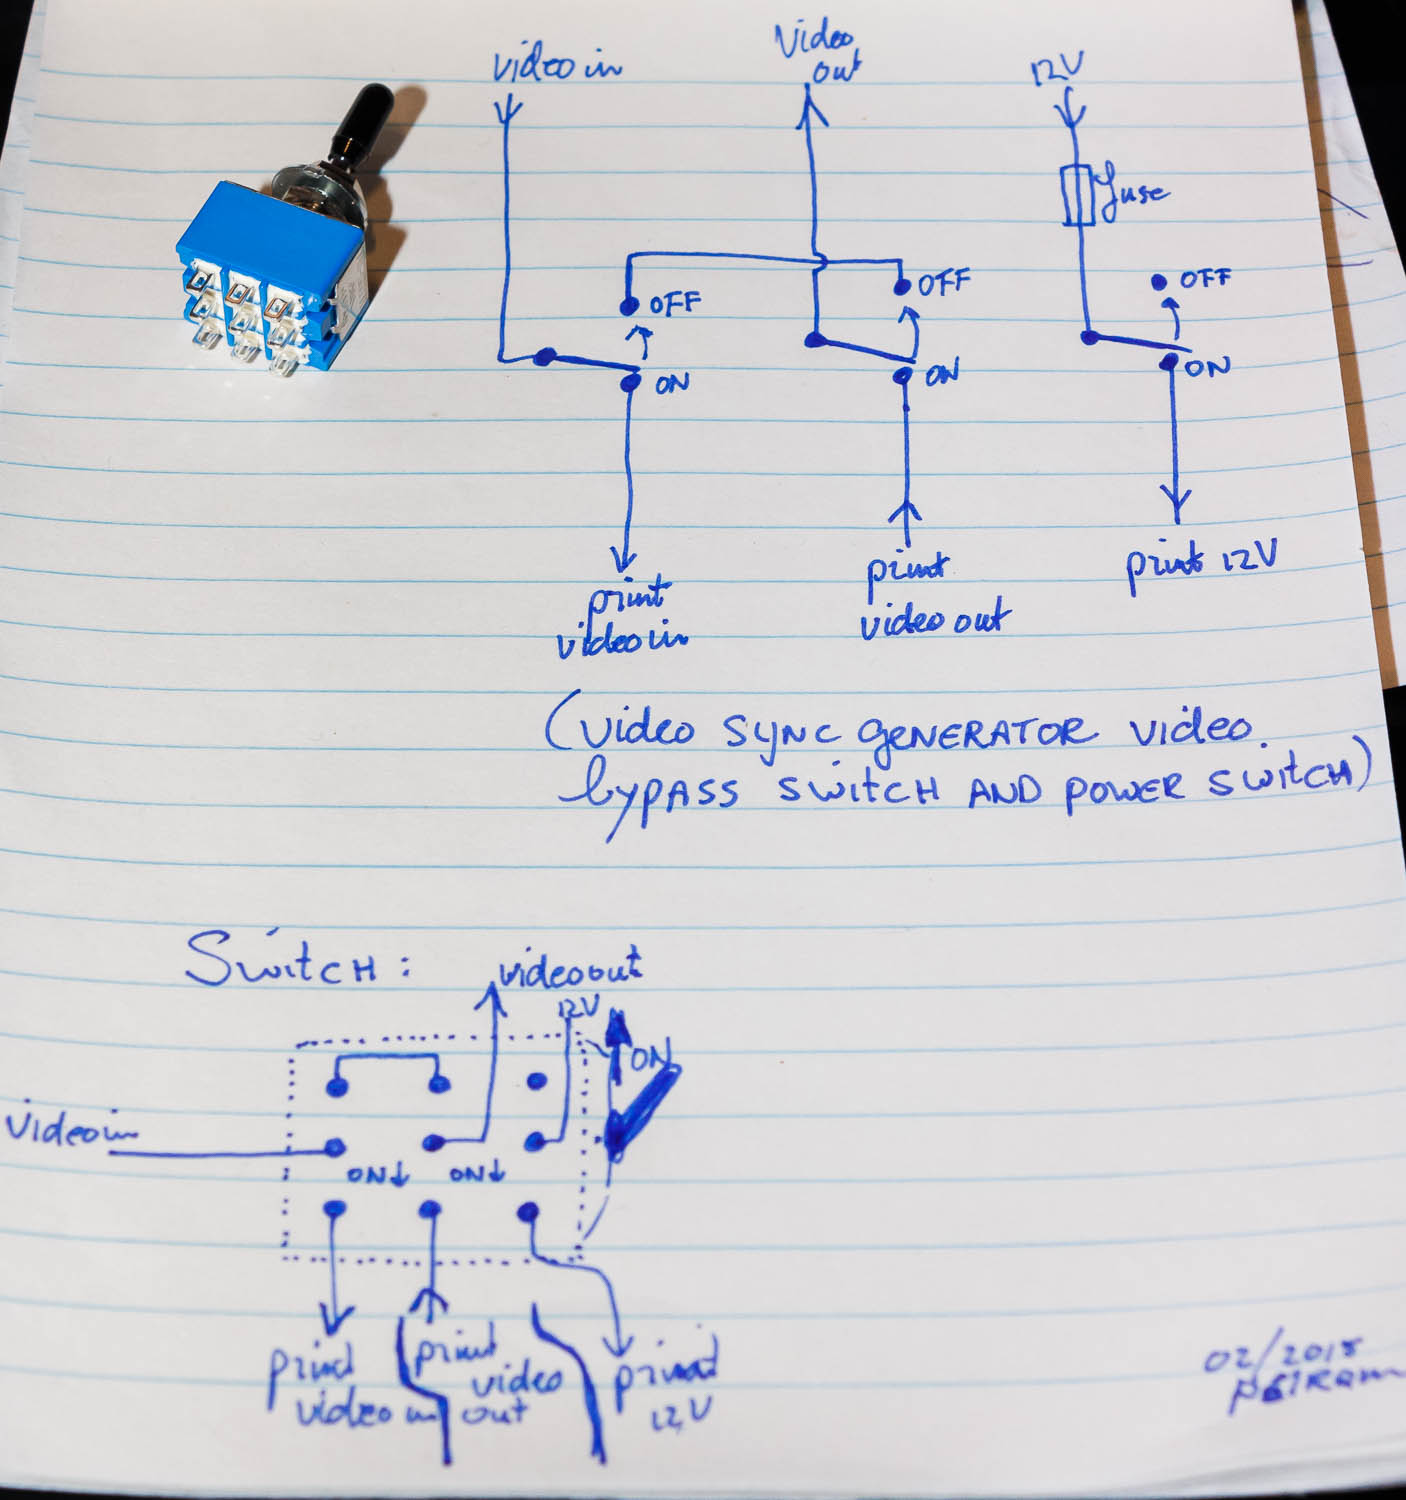 video in
Video
out
12V
fuse
OFF
OFF
OFF
ON
ON
ON
print
video in
print
video out
print 12V
(Video SYNC GENERATOR Video
bypass switch AND power switch)
Switch:
video out
12V
ON
video in
ON↓
ON↓
print
video in
print
video
out
print
12V
02/2015